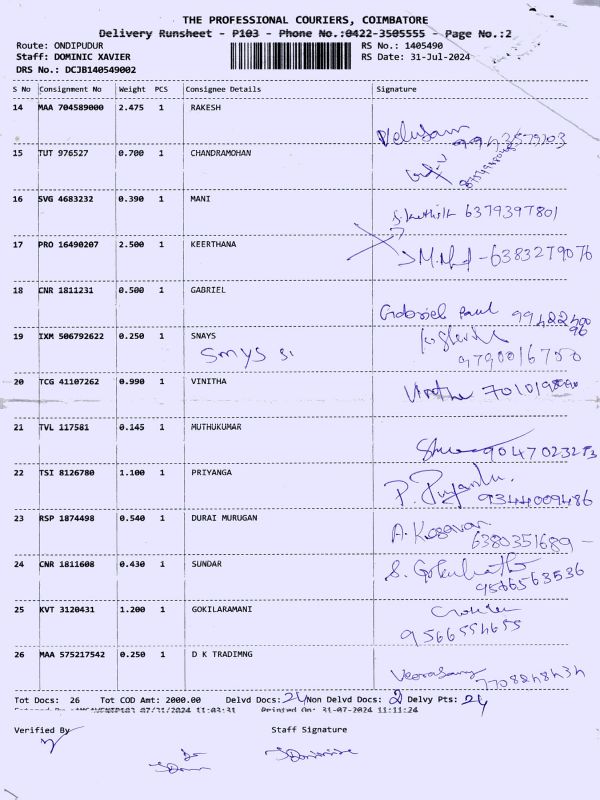 THE PROFESSIONAL COURIERS, COIMBATORE
Delivery Runsheet - P103 - Phone No.:0422-3505555 - Page No.:2
Route: ONDIPUDUR RS No.: 1405490
Staff: DOMINIC XAVIER RS Date: 31-Jul-2024
DRS No.: DCJB140549002
S No Consignment No Weight PCS Consignee Details Signature
14 MAA 704589000 2.475 1 RAKESH
15 TUT 976527 0.700 1 CHANDRAMOHAN
16 SVG 4683232 0.390 1 MANI
6379397801
17 PRO 16490207 2.500 1 KEERTHANA
6383279076
18 CNR 1811231 0.500 1 GABRIEL
Gabriel Paul
19 IXM 506792622 0.250 1 SNAYS
20 TCG 41107262 0.990 1 VINITHA
21 TVL 117581 0.145 1 MUTHUKUMAR
22 TSI 8126780 1.100 1 PRIYANGA
9344009486
23 RSP 1874498 0.540 1 DURAI MURUGAN
6380351689
24 CNR 1811608 0.430 1 SUNDAR
9566563536
25 KVT 3120431 1.200 1 GOKILARAMANI
9566554655
26 MAA 575217542 0.250 1 D K TRADIMNG
Tot Docs: 26 Tot COD Amt: 2000.00 Delvd Docs: 24 Non Delvd Docs: 2 Delvy Pts: 24
07/31/2024 11:03:31 Printed On: 31-07-2024 11:11:24
Verified By Staff Signature